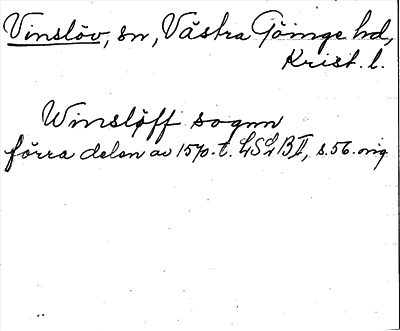 Vinslöv, sn, Västra Göinge hd,
Krist. l.
Winsløff sognn
förra delen av 1570-t. LSLB II, s. 56. orig